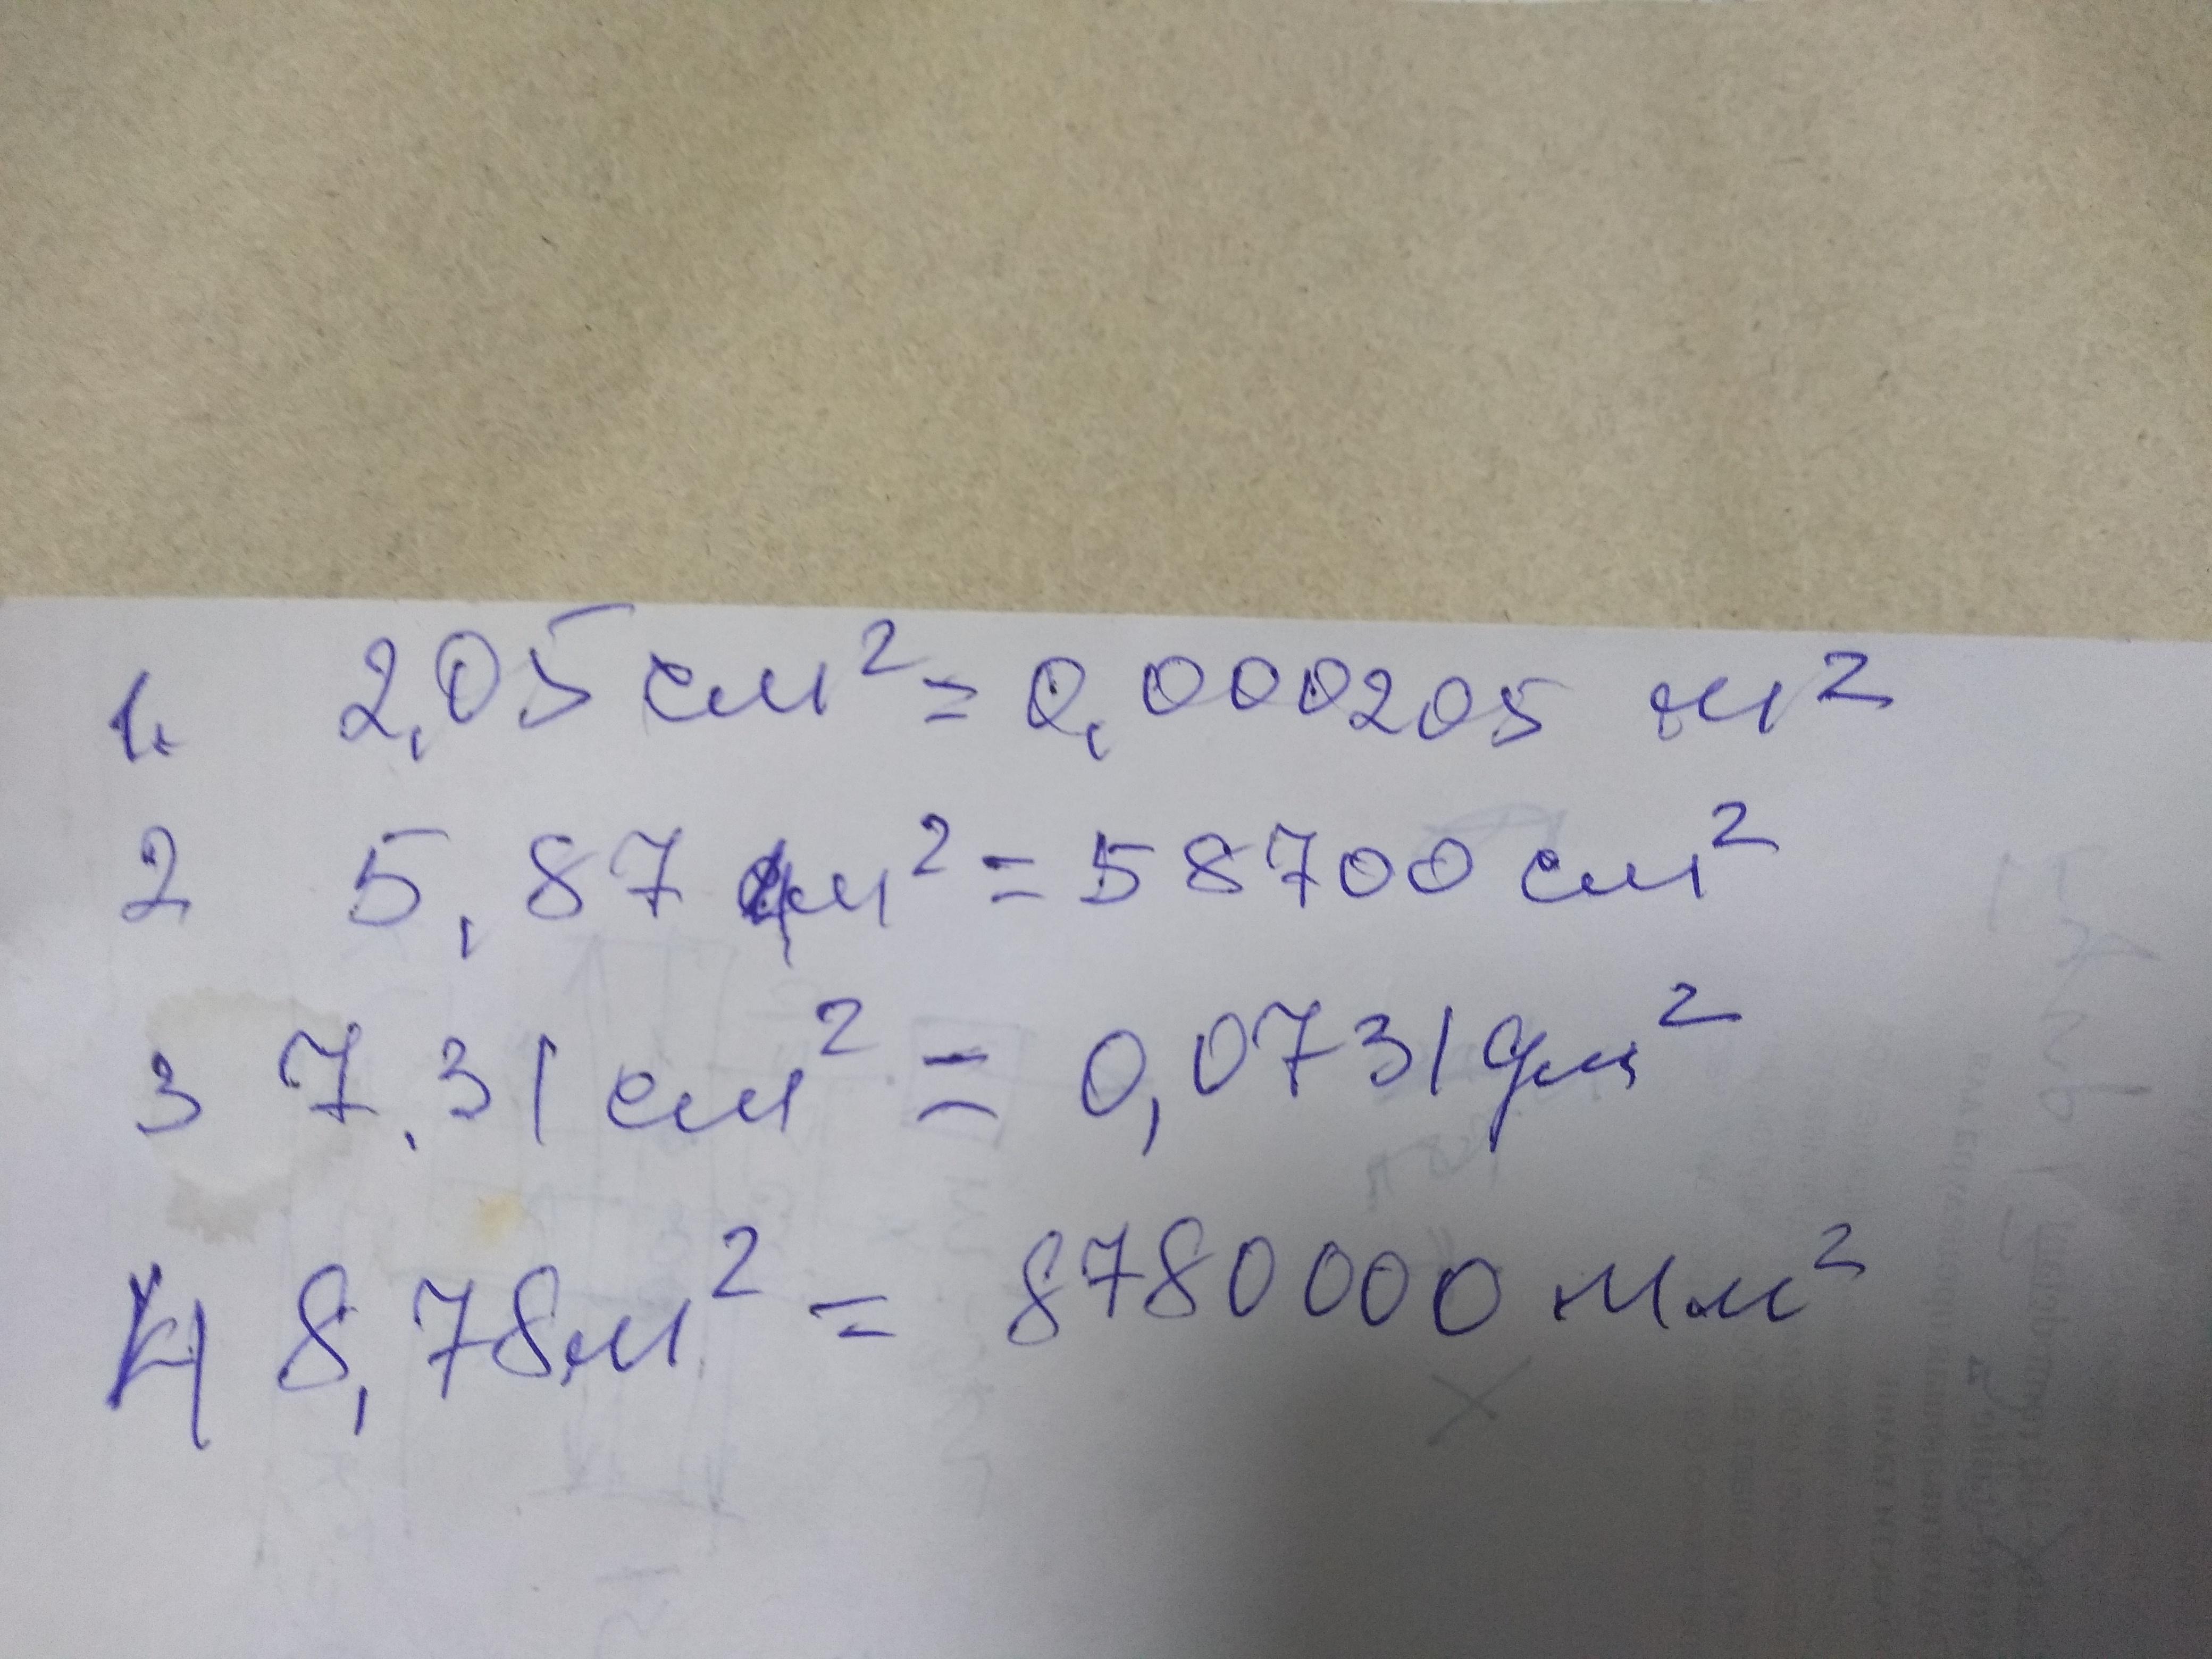 1. 2,05 см² = 0,000205 м²
2 5,87 дм² = 58700 см²
3 7,31 см² = 0,0731 дм²
4 8,78 м² = 8780000 мм²